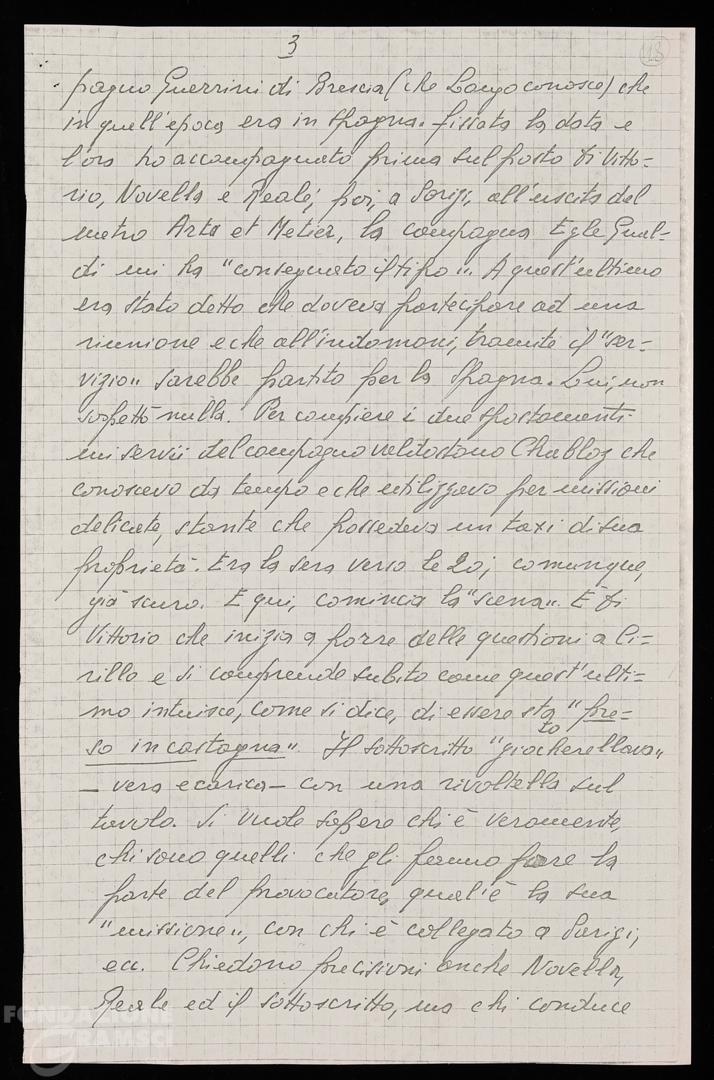 3
118
pagno Guerrini di Brescia (che Longo conosce) che
in quell'epoca era in Spagna. Fissata la data e
l'ora ho accompagnato prima sul posto Di Vitto-
rio, Novella e Reale, poi, a Parigi, all'uscita del
metro Arts et Metier, la compagna Egle Gual-
di mi ha "consegnato il tipo". A quest'ultimo
era stato detto che doveva partecipare ad una
riunione e che all'indomani, tramite il "ser-
vizio" sarebbe partito per la Spagna. Lui, non
sospettò nulla. Per compiere i due spostamenti
mi servii del compagno valdostano Chabloz che
conoscevo da tempo e che utilizzavo per missioni
delicate, stante che possedeva un taxi di sua
proprietà. Era la sera verso le 20; comunque,
già scuro. E qui, comincia la "scena". È Di
Vittorio che inizia a porre delle questioni a Ci-
rillo e si comprende subito come quest'ulti-
mo intuisce, come si dice, di essere stato "pre-
so in castagna". Il sottoscritto "giocherellava"
- vera e carica - con una rivoltella sul
tavolo. Si vuole sapere chi è veramente,
chi sono quelli che gli fanno fare la
parte del provocatore, qual'è la sua
"missione", con chi è collegato a Parigi,
ecc. Chiedono precisioni anche Novella,
Reale ed il sottoscritto, ma chi conduce
FONDAZIONE
GRAMSCI